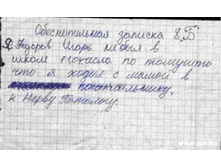 Обеснительная записка 8 "Б"
Я Федоров Игорь небыл в
школи
по томушто
что я ходил с мамой в
поликлинику,
к Нерву Патологу.